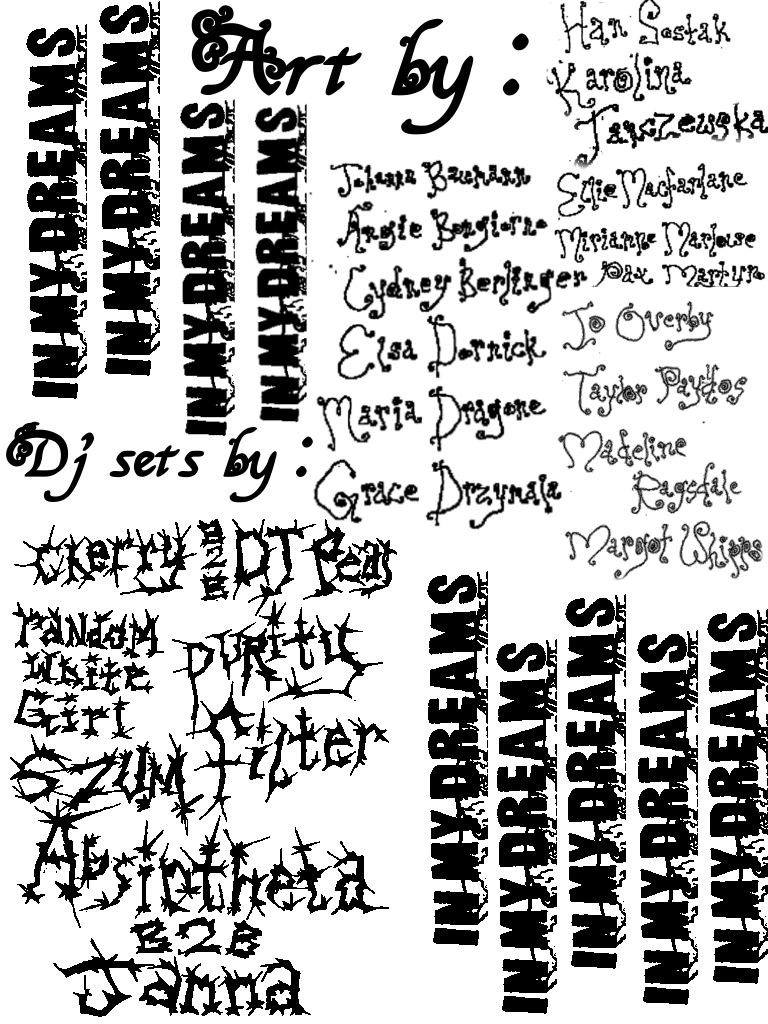 IN MY DREAMS
IN MY DREAMS
IN MY DREAMS
IN MY DREAMS
Art by :
Johann Baumann
Angie Bongiorno
Cydney Berlinger
Elsa Dornick
Maria Dragone
Grace Drzymala
Han Sostak
Karolina
Janczewska
Ellie Macfarlane
Mirianne Marlouse
Pax Martyn
Jo Overby
Taylor Paydos
Madeline
Ragsdale
Margot Whipps
Dj sets by :
Ckerry B2B DT Peas
random
white
Girl
purity
Filter
SZUM
Absintheta
B2B
Janna
IN MY DREAMS
IN MY DREAMS
IN MY DREAMS
IN MY DREAMS
IN MY DREAMS